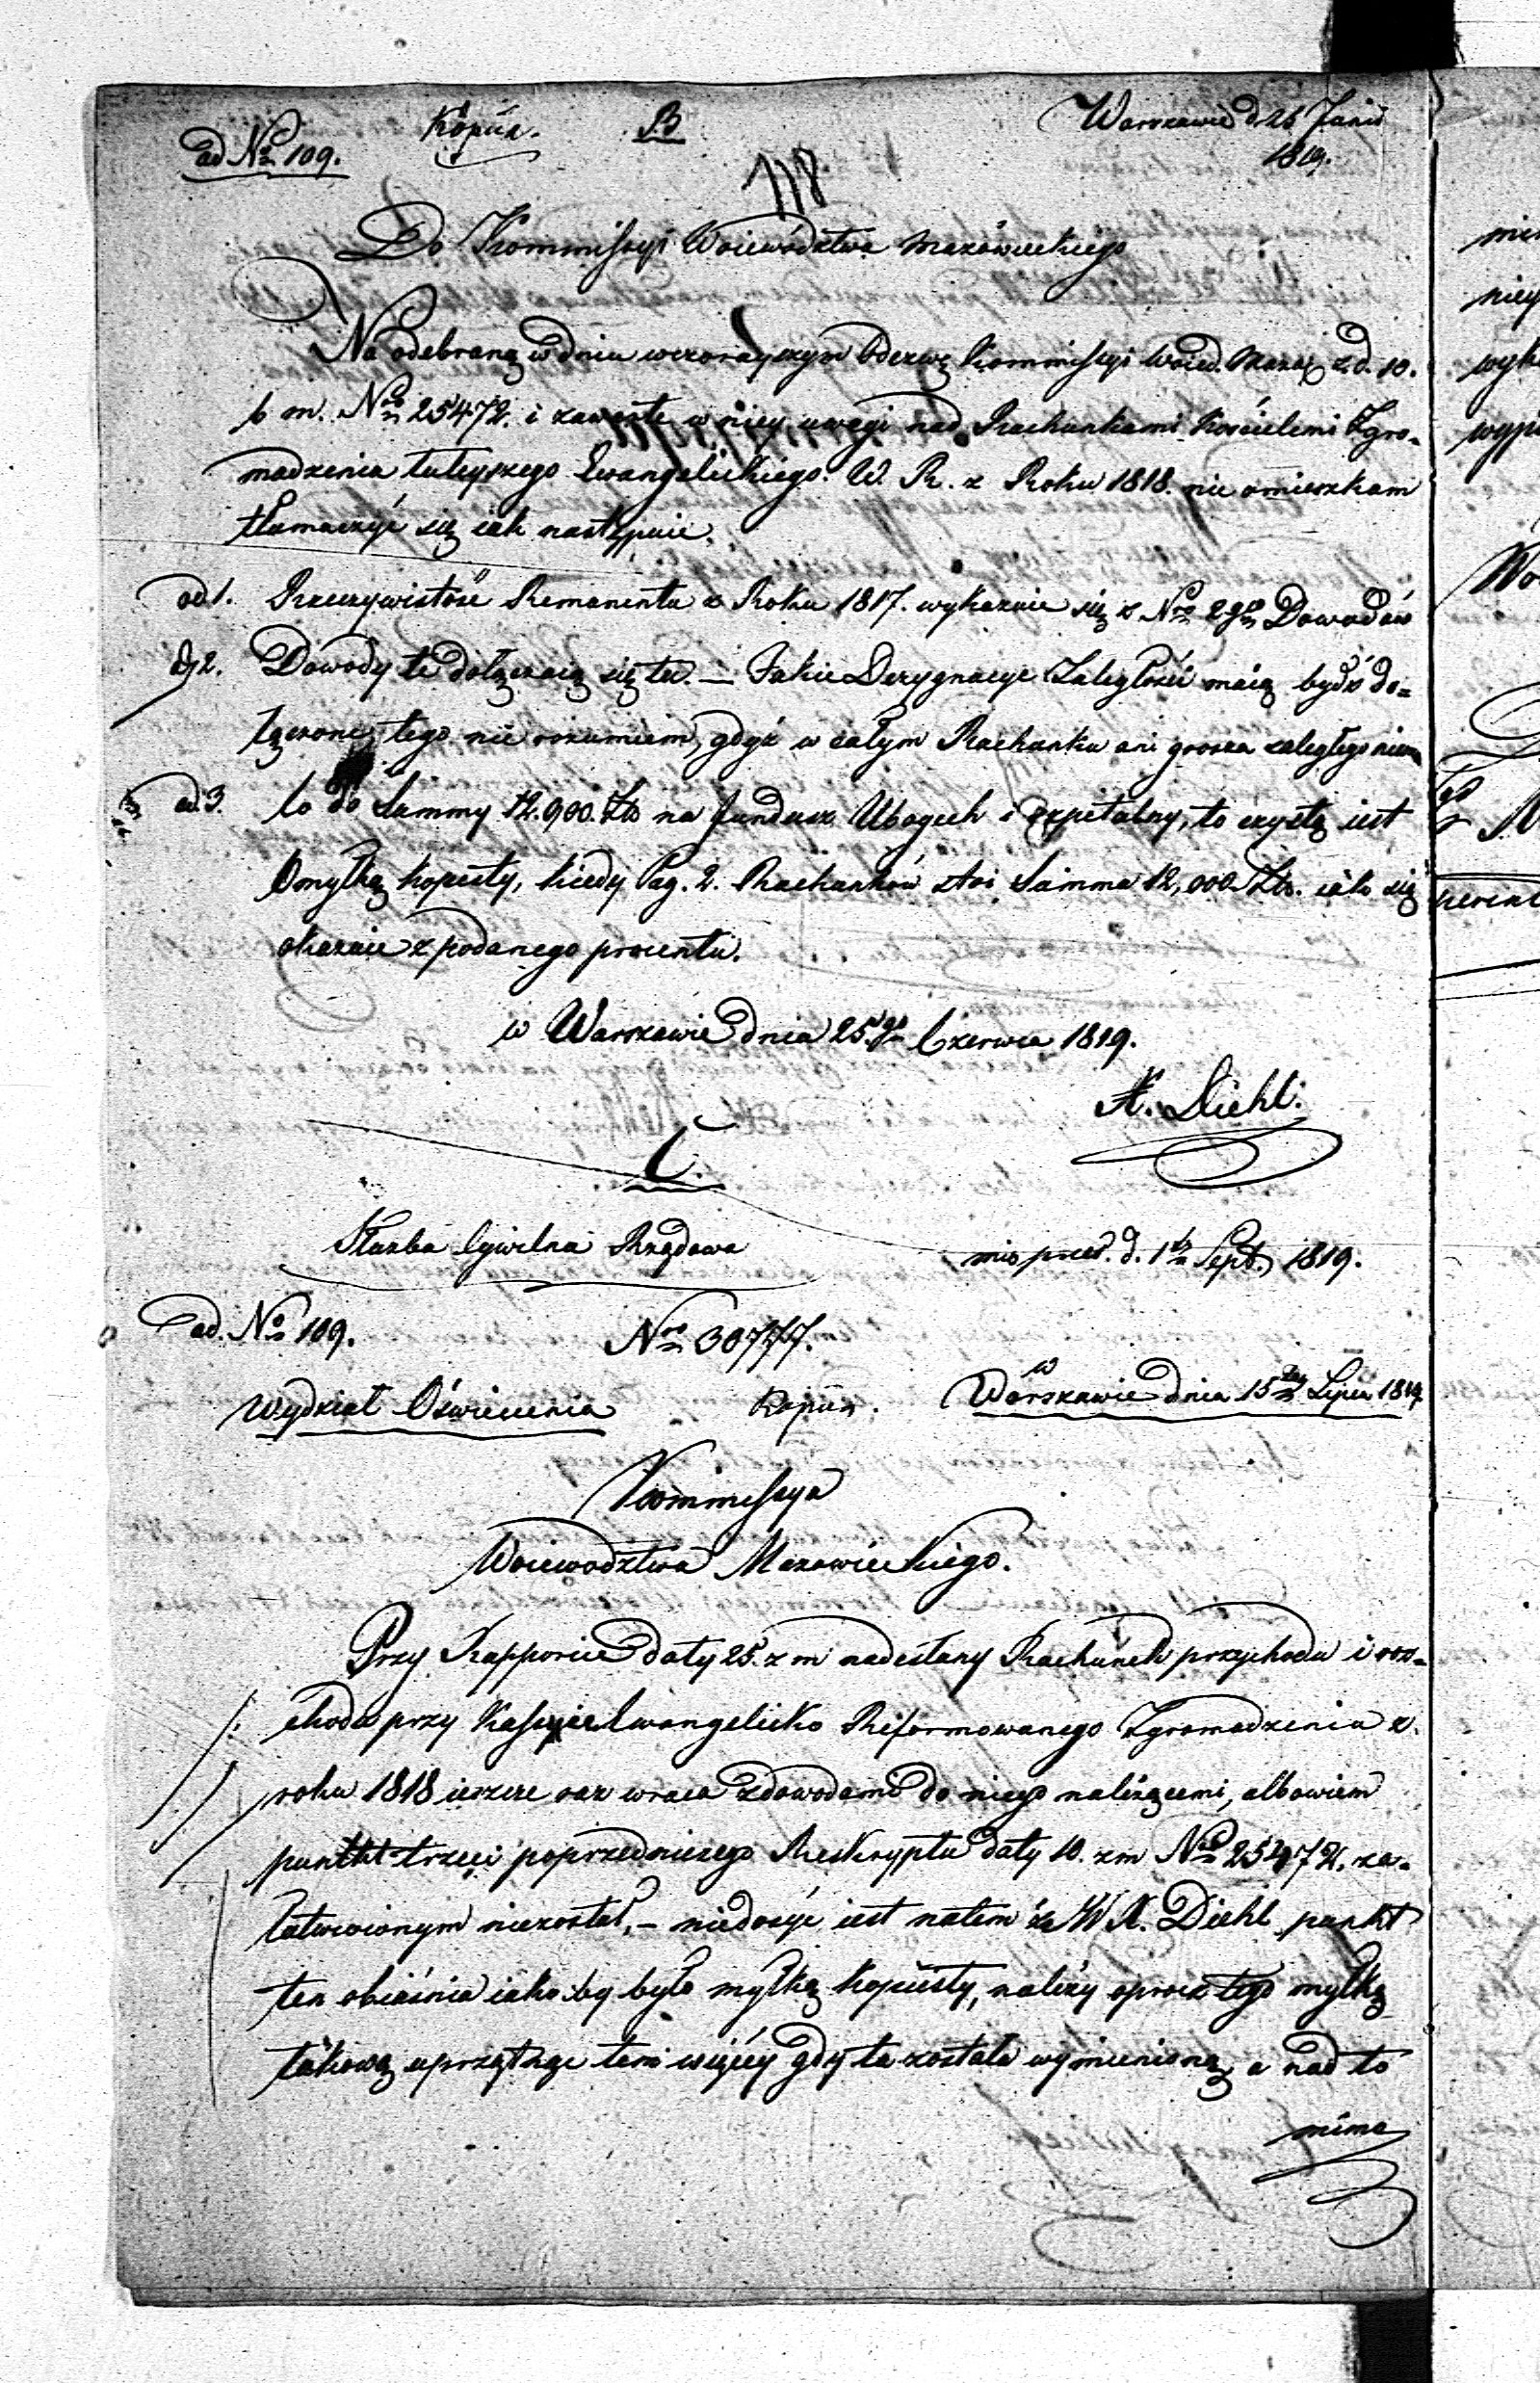 ad Nro 109.
Kopiia.
B
Warszawie d 25 Junii
1819.
118
Do Kommissyi Woiewództwa Mazowieckiego
Na odebraną w dniu wczorayszym Odezwę Kommissyi Woiew. Mazow. z d. 10.
b m. Nro 25472. i zawarte w niey uwagi nad Rachunkami Kościelnemi Zgro-
madzenia tuteyszego Ewangelickiego W. R. z Roku 1818. nie omieszkam
tłumaczyć się iak następuie.
ad 1. Rzeczywistość Remanentu z Roku 1817. wykazuie się z Nro 2go Dowodów
ad 2. Dowody te dołączaią się tu. — Jakie Dezygnacye Zaległości maią bydź do-
łączone, tego nie rozumiem, gdyż w całym Rachunku ani grosza zaległego niema
ad 3. Co do Summy 12.900. Złt na fundusz Ubogich i Szpitalny, to czystą iest
Omyłką kopisty, kiedy Pag. 2. Rachunków stoi Summa 12,000 Złt. iak się
okazuie z podanego procentu.
w Warszawie dnia 25go Czerwca 1819.
K. Diehl.
C.
Służba Cywilna Rządowa
mis praes. d. 1 Sept. 1819.
ad. No 109.
Nro 30777.
w
Wydział Oświecenia
Kopiia.
Warszawie dnia 15 Lipca 1819.
Kommissya
Woiewodztwa Mazowieckiego.
Przy Rapporcie daty 25. z m nadesłany Rachunek przychodu i roz-
chodu przy Kassie Ewangelicko Reformowanego Zgromadzenia z
roku 1818 ieszcze raz wraca z dowodami do niego należącemi, albowiem
punkt trzeci poprzedniczego Reskryptu daty 10. z m Nro 25472. za-
łatwionym niezostał, — niedosyć iest natem że W K. Diehl punkt
ten obiaśnia iako by było myłką kopiisty, należy oprócz tego myłkę
takową uprzątnąć tem więcey gdy ta została wymienioną, a nad to
mimo